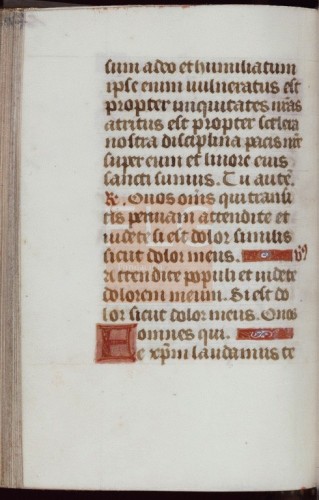 sum a deo et humiliatum
ipse enim uulneratus est
propter iniquitates nr̄as
atritus est propter scelera
nostra disciplina pacis nr̄e
super eum et liuore eius
sancti sumus. Tu autē.
R. O uos om̄s qui transi
tis per uiam attendite et
uidete si est dolor similis
sicut dolor meus. v̓s
Attendite populi et uidete
dolorem meum. Si est do
lor sicut dolor meus. O uos
omnes qui.
Te xp̄m laudamus te